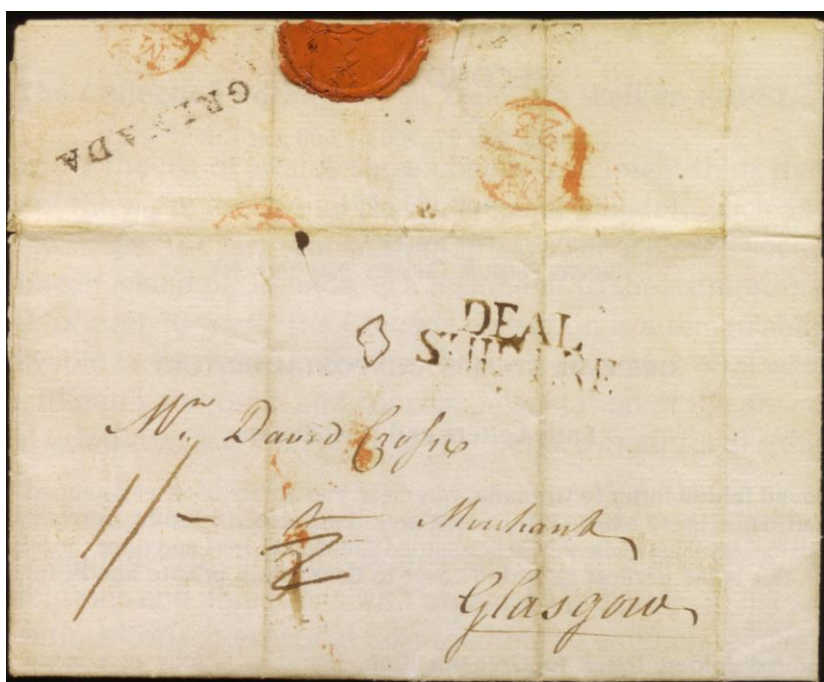 GRENADA
28
DEAL
SHIP LRE
Mr. David Cross
1/-
Merchant
Glasgow